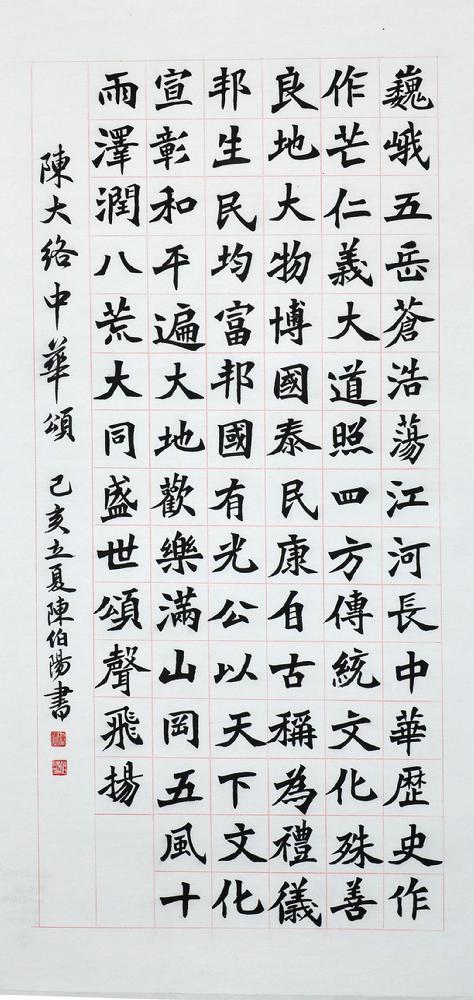 巍峨五岳蒼浩蕩江河長中華歷史作
作芒仁義大道照四方傳統文化殊善
良地大物博國泰民康自古稱為禮儀
邦生民均富邦國有光公以天下文化
宣彰和平遍大地歡樂滿山岡五風十
雨澤潤八荒大同盛世頌聲飛揚
陳大絡中華頌 己亥立夏陳伯陽書